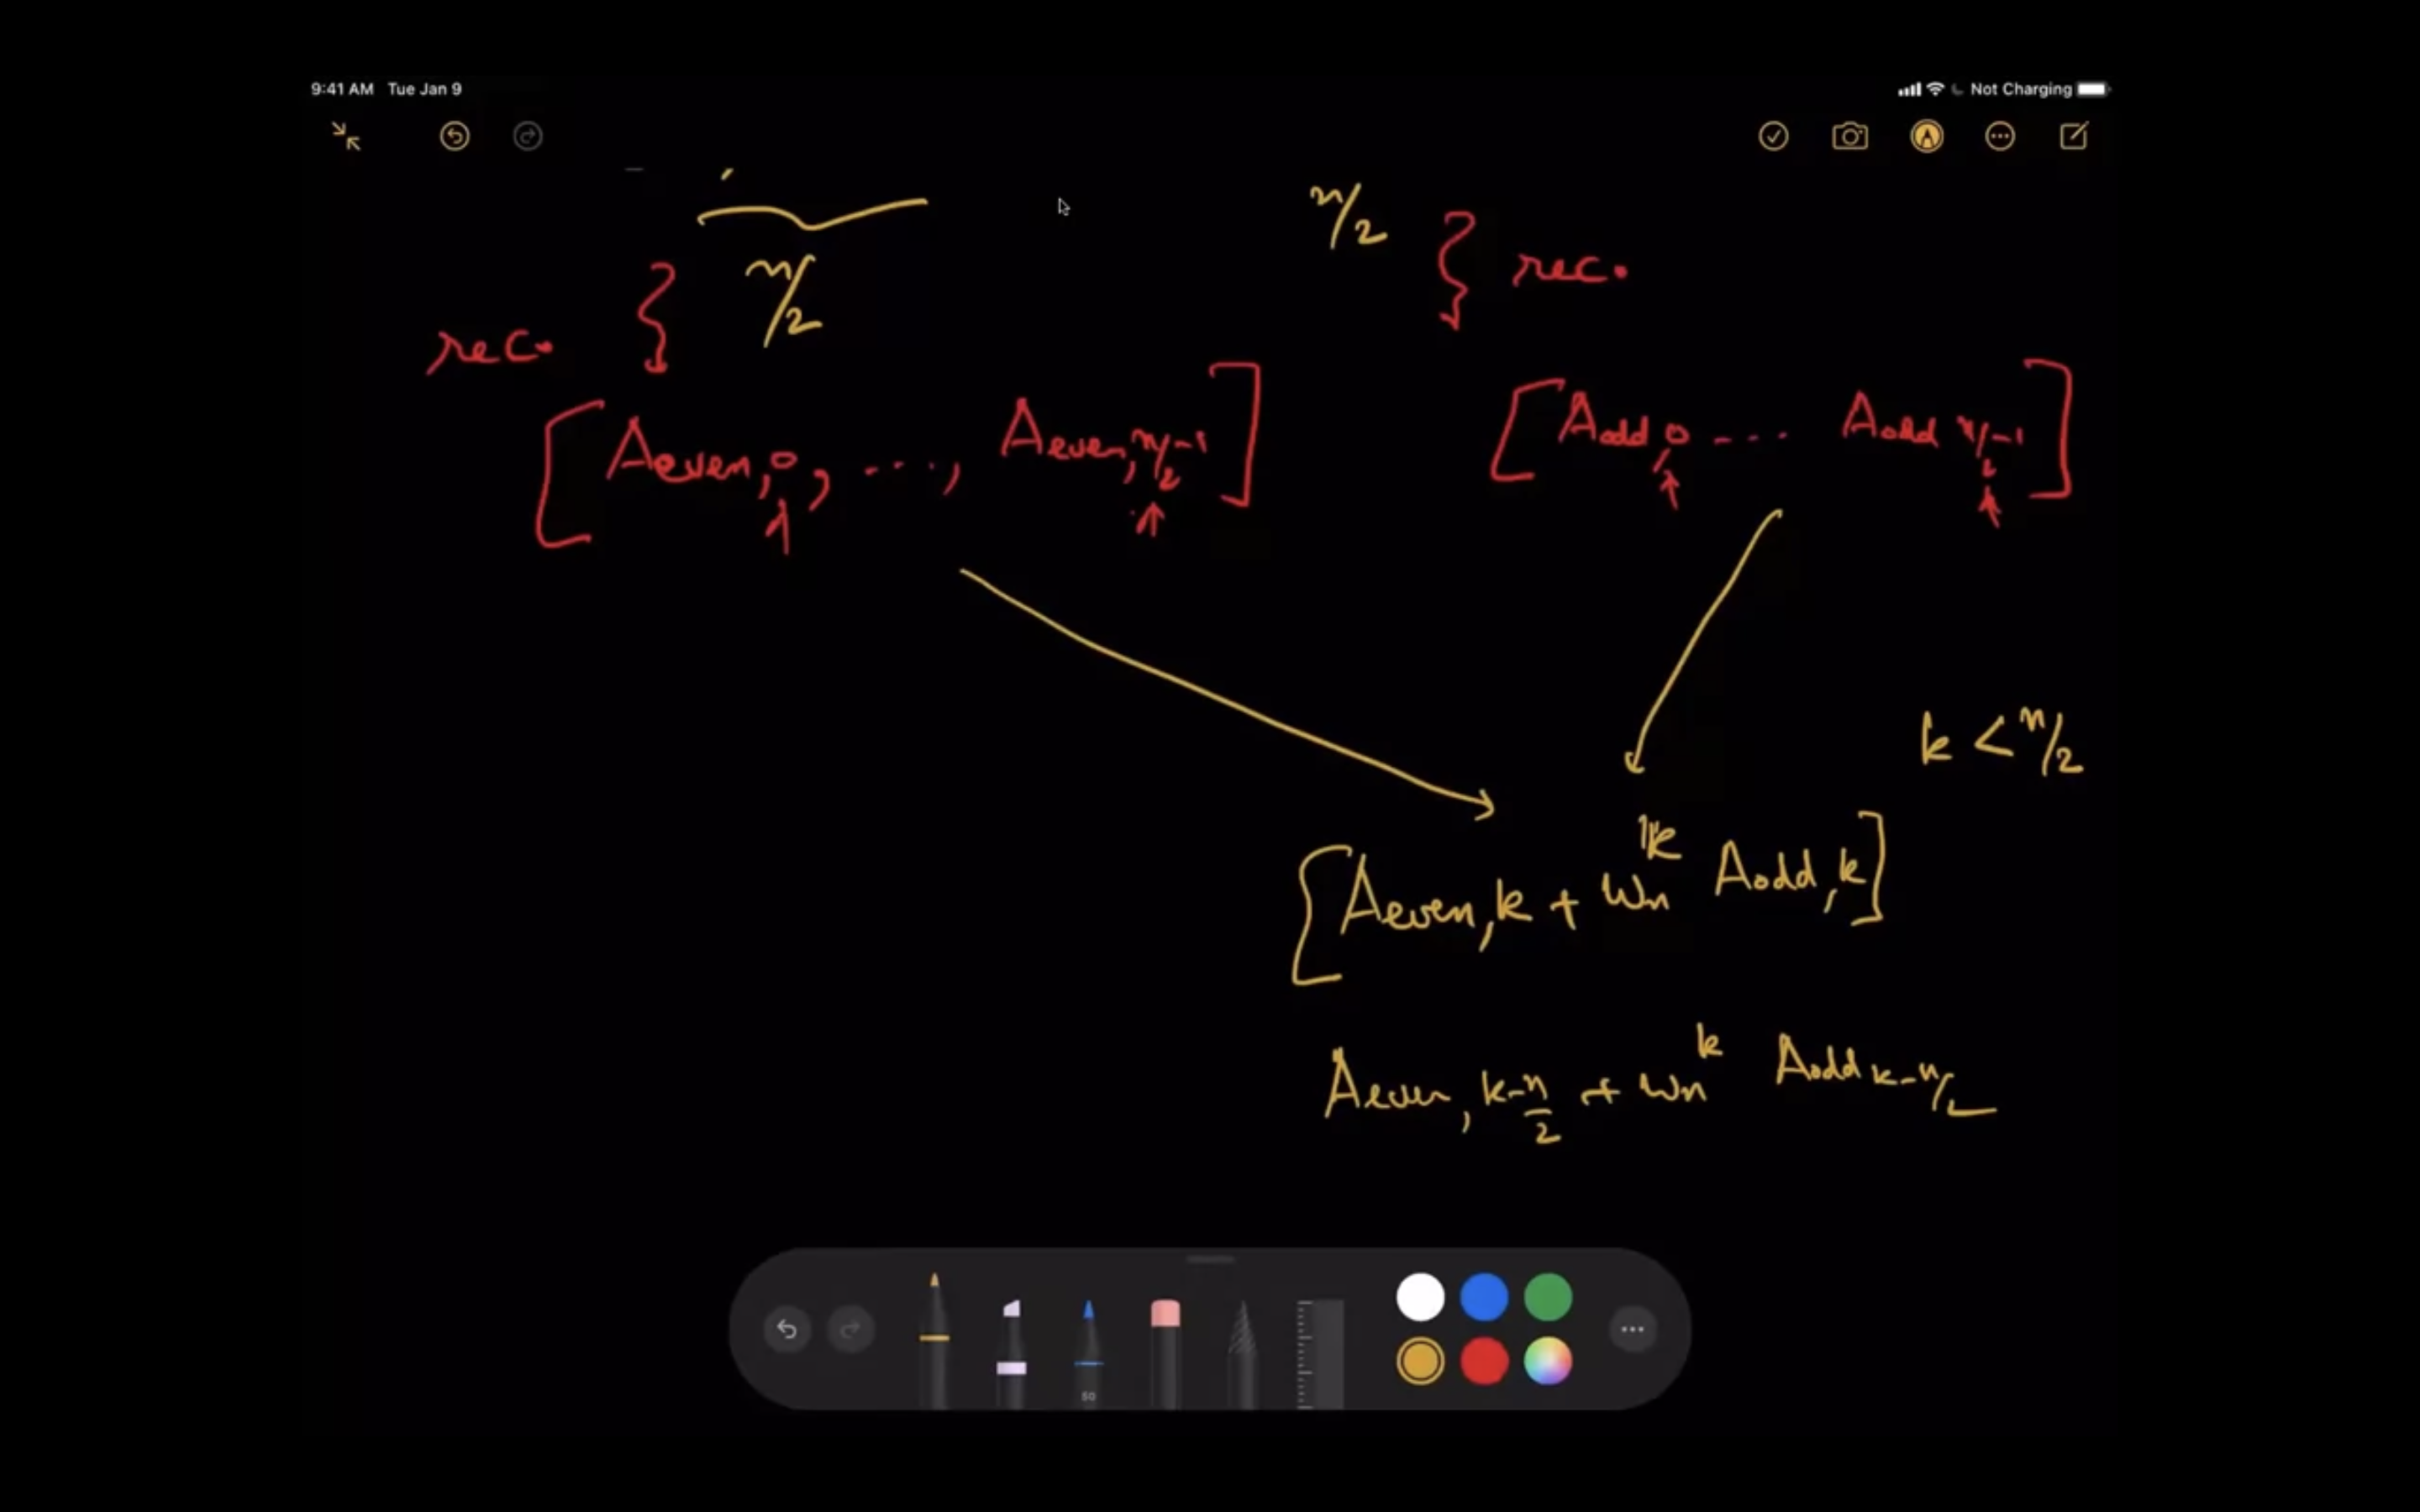 9:41 AM Tue Jan 9
Not Charging
n/2
n/2 } rec.
rec. }
[Aeven,0, ..., Aeven,n/2-1]
[Aodd,0 ... Aodd n/2-1]
k < n/2
[Aeven,k + wn^k Aodd,k]
Aeven, k-n/2 + wn^k Aodd k-n/2
50